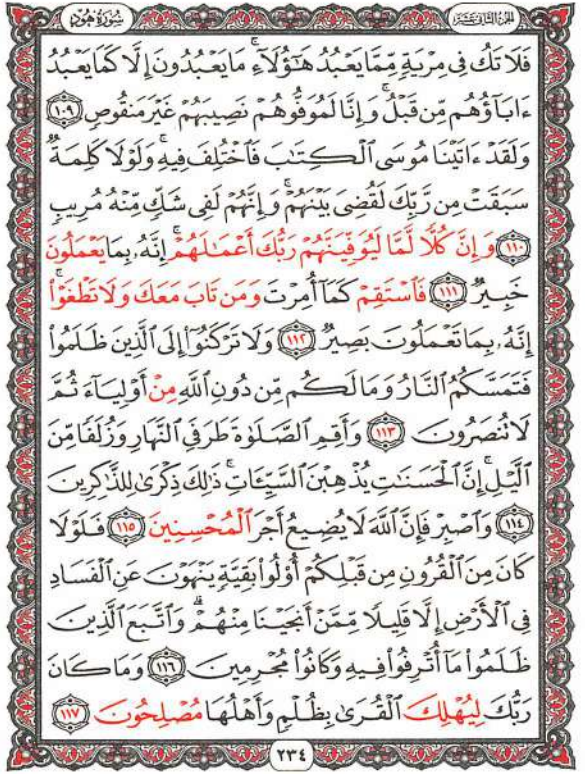 الجزء الثاني عشر
سُورَةُ هُودٍ
فَلَا تَكُ فِى مِرْيَةٍ مِّمَّا يَعْبُدُ هَٰٓؤُلَآءِ ۚ مَا يَعْبُدُونَ إِلَّا كَمَا يَعْبُدُ
ءَابَآؤُهُم مِّن قَبْلُ ۚ وَإِنَّا لَمُوَفُّوهُمْ نَصِيبَهُمْ غَيْرَ مَنقُوصٍ ١٠٩
وَلَقَدْ ءَاتَيْنَا مُوسَى ٱلْكِتَٰبَ فَٱخْتُلِفَ فِيهِ ۚ وَلَوْلَا كَلِمَةٌ
سَبَقَتْ مِن رَّبِّكَ لَقُضِىَ بَيْنَهُمْ ۚ وَإِنَّهُمْ لَفِى شَكٍّ مِّنْهُ مُرِيبٍ
١١٠ وَإِنَّ كُلًّا لَّمَّا لَيُوَفِّيَنَّهُمْ رَبُّكَ أَعْمَٰلَهُمْ ۚ إِنَّهُۥ بِمَا يَعْمَلُونَ
خَبِيرٌ ١١١ فَٱسْتَقِمْ كَمَآ أُمِرْتَ وَمَن تَابَ مَعَكَ وَلَا تَطْغَوْا۟ ۚ
إِنَّهُۥ بِمَا تَعْمَلُونَ بَصِيرٌ ١١٢ وَلَا تَرْكَنُوٓا۟ إِلَى ٱلَّذِينَ ظَلَمُوا۟
فَتَمَسَّكُمُ ٱلنَّارُ وَمَا لَكُم مِّن دُونِ ٱللَّهِ مِنْ أَوْلِيَآءَ ثُمَّ
لَا تُنصَرُونَ ١١٣ وَأَقِمِ ٱلصَّلَوٰةَ طَرَفَىِ ٱلنَّهَارِ وَزُلَفًا مِّنَ
ٱلَّيْلِ ۚ إِنَّ ٱلْحَسَنَٰتِ يُذْهِبْنَ ٱلسَّيِّـَٔاتِ ۚ ذَٰلِكَ ذِكْرَىٰ لِلذَّٰكِرِينَ
١١٤ وَٱصْبِرْ فَإِنَّ ٱللَّهَ لَا يُضِيعُ أَجْرَ ٱلْمُحْسِنِينَ ١١٥ فَلَوْلَا
كَانَ مِنَ ٱلْقُرُونِ مِن قَبْلِكُمْ أُو۟لُوا۟ بَقِيَّةٍ يَنْهَوْنَ عَنِ ٱلْفَسَادِ
فِى ٱلْأَرْضِ إِلَّا قَلِيلًا مِّمَّنْ أَنجَيْنَا مِنْهُمْ ۗ وَٱتَّبَعَ ٱلَّذِينَ
ظَلَمُوا۟ مَآ أُتْرِفُوا۟ فِيهِ وَكَانُوا۟ مُجْرِمِينَ ١١٦ وَمَا كَانَ
رَبُّكَ لِيُهْلِكَ ٱلْقُرَىٰ بِظُلْمٍ وَأَهْلُهَا مُصْلِحُونَ ١١٧
٢٣٤